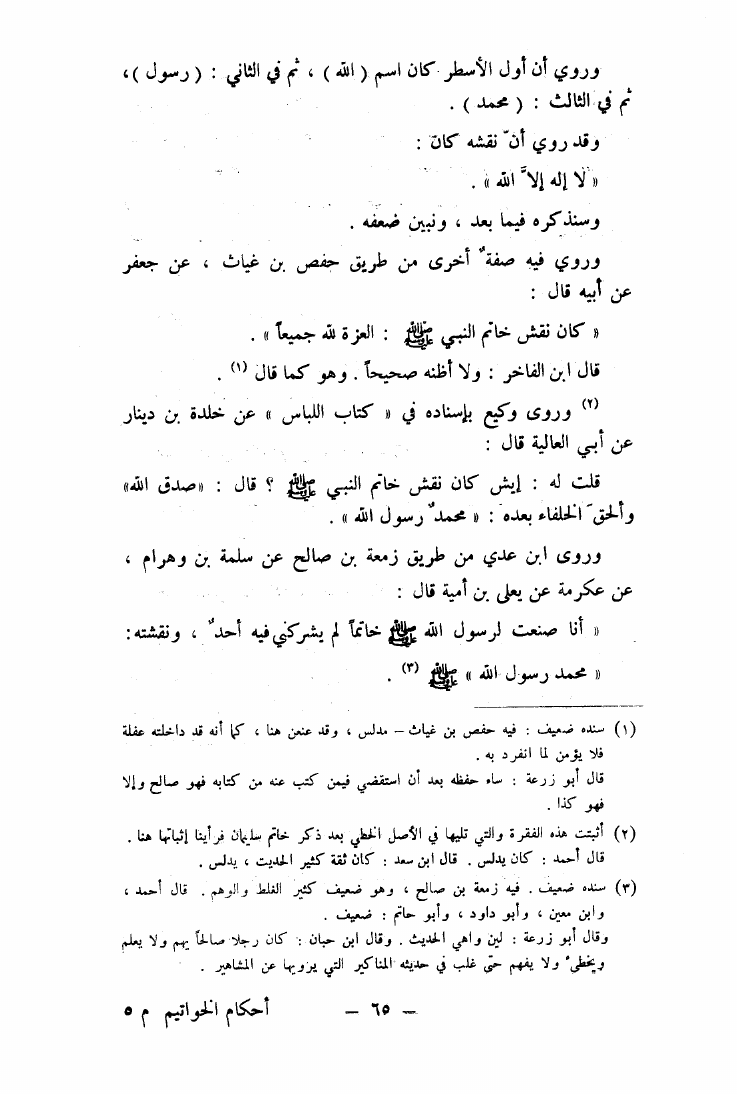 وروي أن أول الأسطر كان اسم ( الله ) ، ثم في الثاني : ( رسول )،
ثم في الثالث : ( محمد ) .
وقد روي أنّ نقشه كان :
« لا إله إلاَّ الله » .
وسنذكره فيما بعد ، ونبين ضعفه .
وروي فيه صفةٌ أخرى من طريق حفص بن غياث ، عن جعفر
عن أبيه قال :
« كان نقش خاتم النبي ﷺ : العزة لله جميعاً » .
قال ابن الفاخر : ولا أظنه صحيحاً . وهو كما قال (١) .
(٢) وروى وكيع بإسناده في « كتاب اللباس » عن خلدة بن دينار
عن أبي العالية قال :
قلت له : إيش كان نقش خاتم النبي ﷺ ؟ قال : «صدق الله»
وألحقَ الخلفاء بعده : « محمدٌ رسول الله » .
وروى ابن عدي من طريق زمعة بن صالح عن سلمة بن وهرام ،
عن عكرمة عن يعلى بن أمية قال :
« أنا صنعت لرسول الله ﷺ خاتماً لم يشركني فيه أحدٌ ، ونقشته:
« محمد رسول الله » ﷺ (٣) .
(١) سنده ضعيف : فيه حفص بن غياث – مدلس ، وقد عنعن هنا ، كما أنه قد داخلته عفلة
فلا يؤمن لما انفرد به .
قال أبو زرعة : ساء حفظه بعد أن استقضي فيمن كتب عنه من كتابه فهو صالح وإلا
فهو كذا .
(٢) أثبتت هذه الفقرة والتي تليها في الأصل الخطي بعد ذكر خاتم سليمان فرأينا إثباتها هنا .
قال أحمد : كان يدلس . قال ابن سعد : كان ثقة كثير الحديث ، يدلس .
(٣) سنده ضعيف . فيه زمعة بن صالح ، وهو ضعيف كثير الغلط والوهم . قال أحمد ،
وابن معين ، وأبو داود ، وأبو حاتم : ضعيف .
وقال أبو زرعة : لين واهي الحديث . وقال ابن حبان : كان رجلا صالحاً يهم ولا يعلم
ويخطيء ولا يفهم حتى غلب في حديثه المناكير التي يرويها عن المشاهير .
– ٦٥ – أحكام الخواتيم م ٥